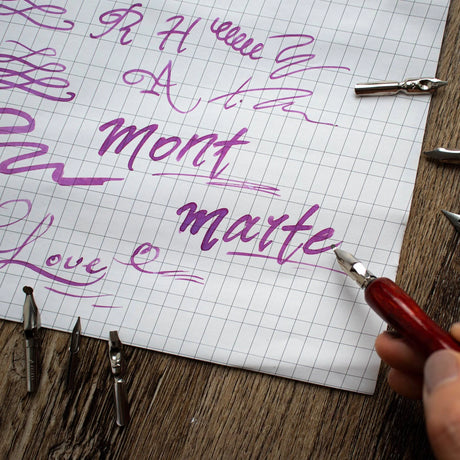 R H
A
Mont
Marte
Love